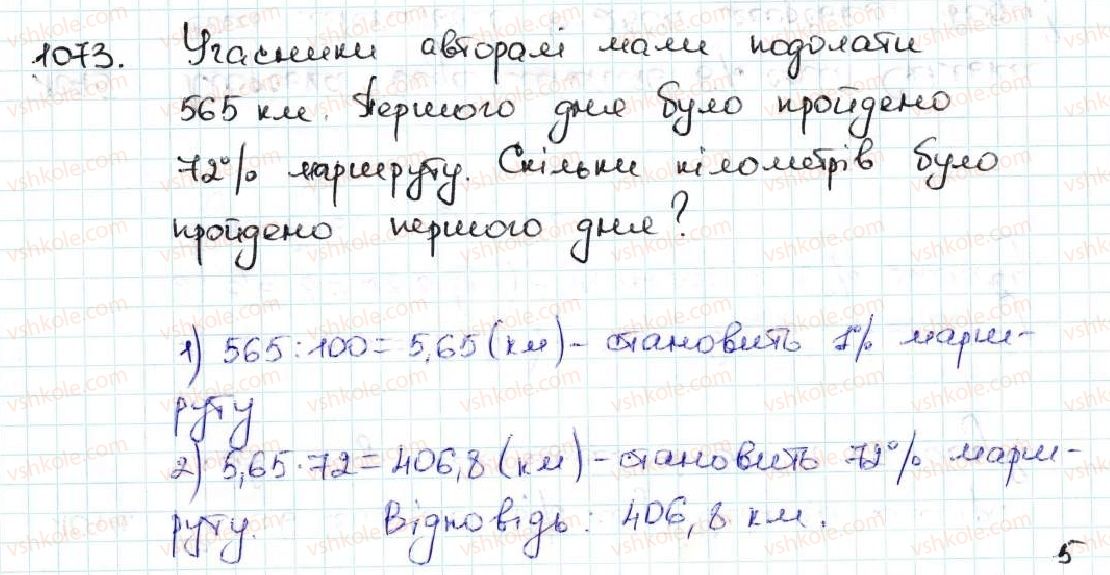 1073. Учасники авторалі мали подолати
565 км. Першого дня було пройдено
72% маршруту. Скільки кілометрів було
пройдено першого дня?
1) 565:100=5,65 (км) - становить 1% марш-
руту
2) 5,65·72=406,8 (км) - становить 72% марш-
руту. Відповідь: 406,8 км.
5